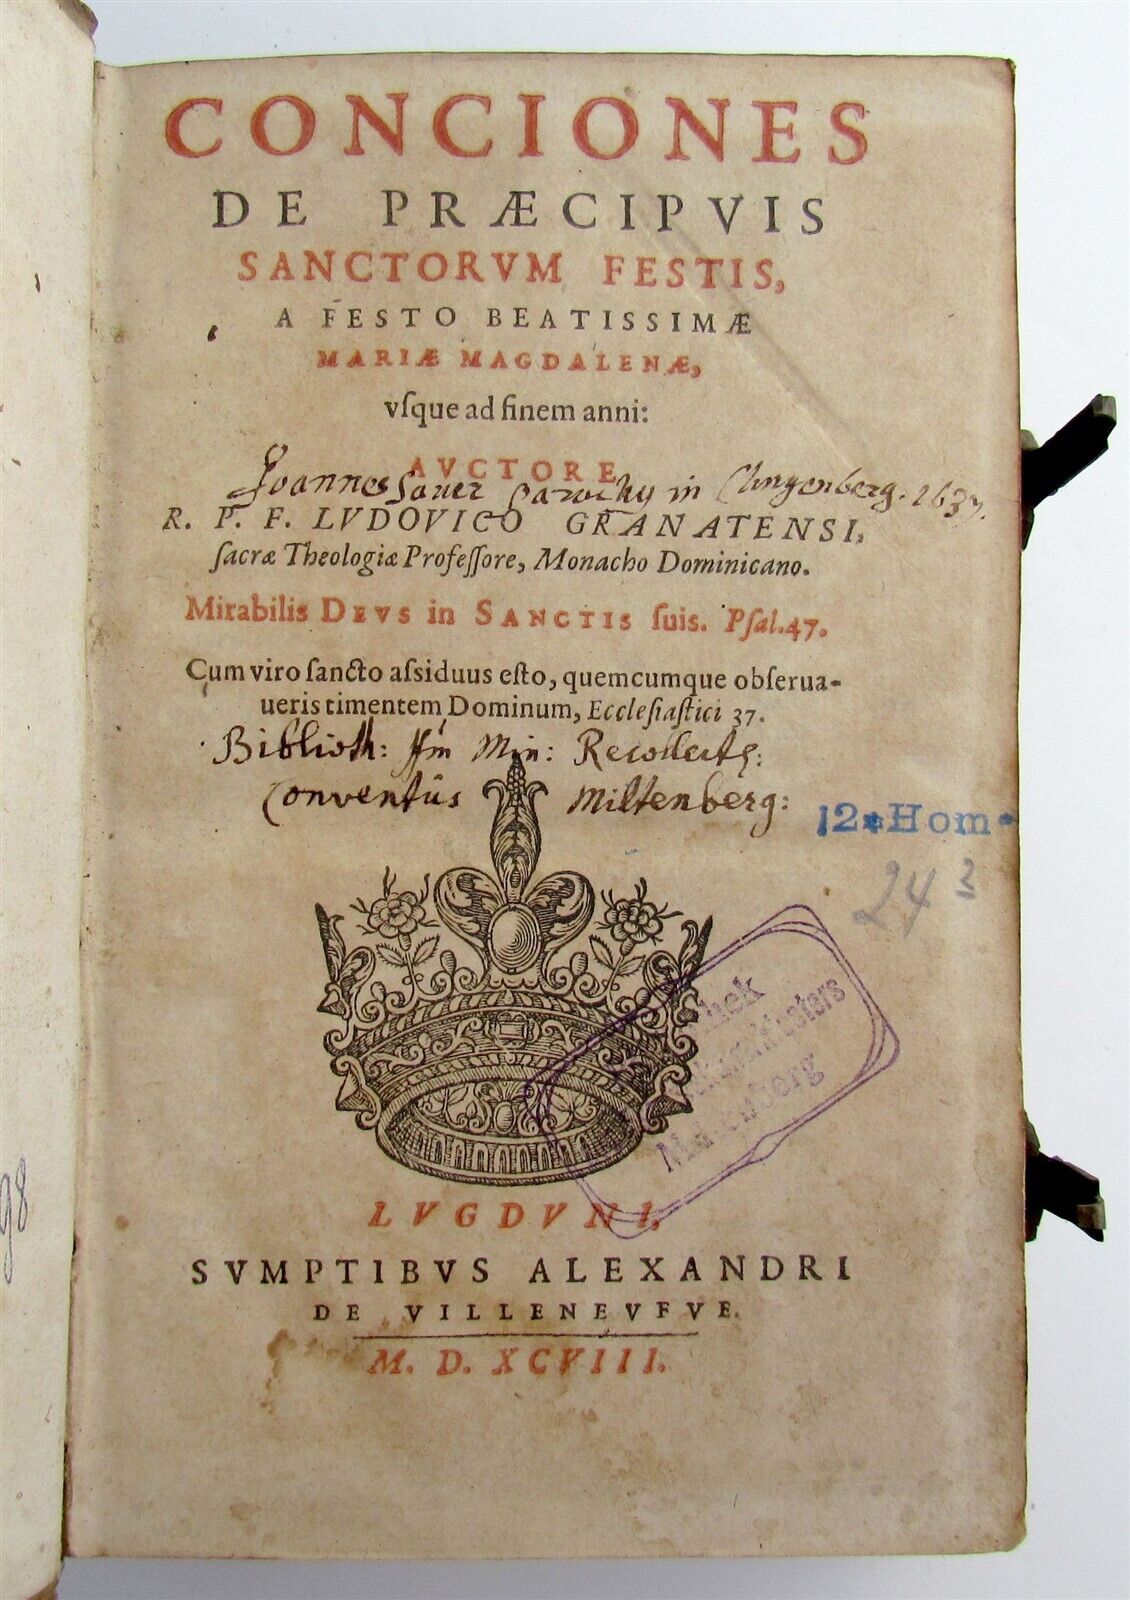 CONCIONES
DE PRÆCIPVIS
SANCTORVM FESTIS,
A FESTO BEATISSIMÆ
MARIÆ MAGDALENÆ,
vſque ad finem anni:
AVCTORE
Joannes Sauer parochy in Clingenberg. 1637.
R. P. F. LVDOVICO GRANATENSI,
ſacræ Theologiæ Profeſſore, Monacho Dominicano.
Mirabilis DEVS in SANCTIS ſuis. Pſal.47.
Cum viro ſancto aſsiduus eſto, quemcumque obſerua-
ueris timentem Dominum, Eccleſiaſtici 37.
Biblioth: Min: Recollectę:
Conventûs Miltenberg:
12*Hom
24 3
LVGDVNI,
SVMPTIBVS ALEXANDRI
DE VILLENEVFVE.
M. D. XCVIII.
98